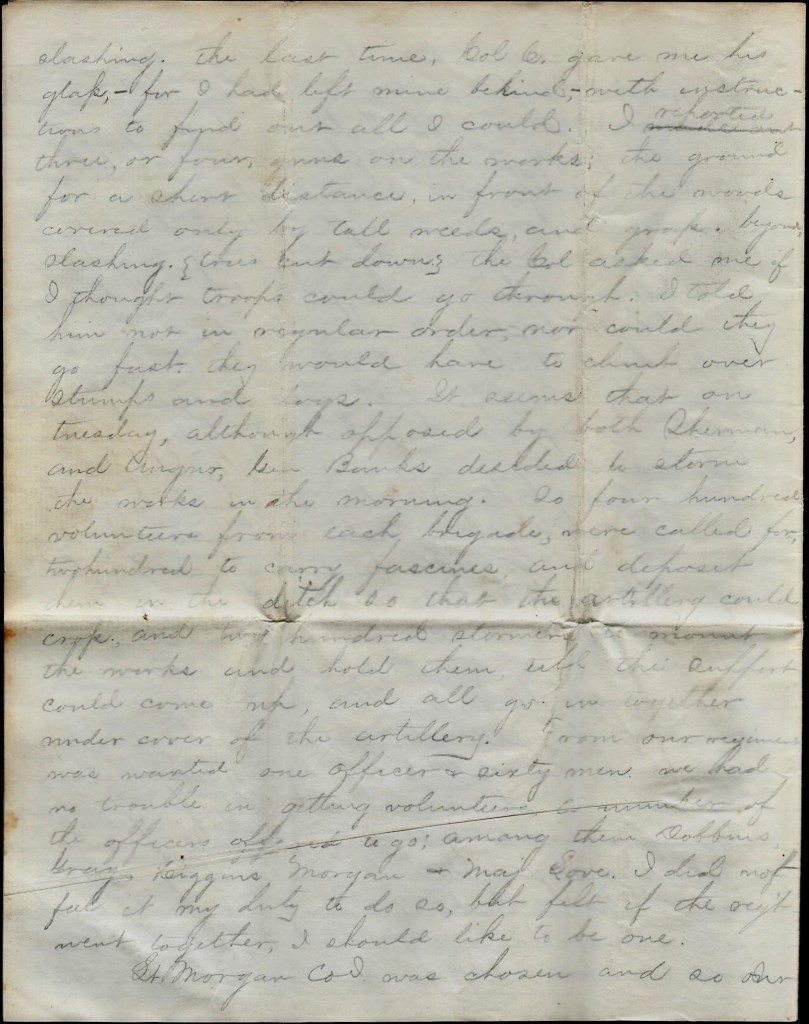 slashing. the last time, Col C. gave me his
glass,- for I had left mine behind,- with instruc-
tions to find out all I could. I reported
three, or four, guns on the works; the ground
for a short distance, in front of the woods
covered only by tall weeds, and grass. beyond
slashing. {trees cut down} the Col asked me if
I thought troops could go through. I told
him not in regular order, nor could they
go fast. they would have to climb over
stumps and logs. It seems that on
tuesday, although opposed by both Sherman,
and Augur, Gen Banks decided to storm
the works in the morning. So four hundred
volunteers from each brigade, were called for,
two hundred to carry fascines and deposit
them in the ditch so that the artillery could
cross, and two hundred stormers to mount
the works and hold them, till the support
could come up, and all go in together
under cover of the artillery. From our regiment
was wanted one officer & sixty men. we had
no trouble in getting volunteers, a number of
the officers offered to go; among them Dobbins,
Gray, Higgins Morgan & Maj Love. I did not
feel it my duty to do so, but felt if the regt
went together, I should like to be one.
Lt. Morgan Co I. was chosen and so our